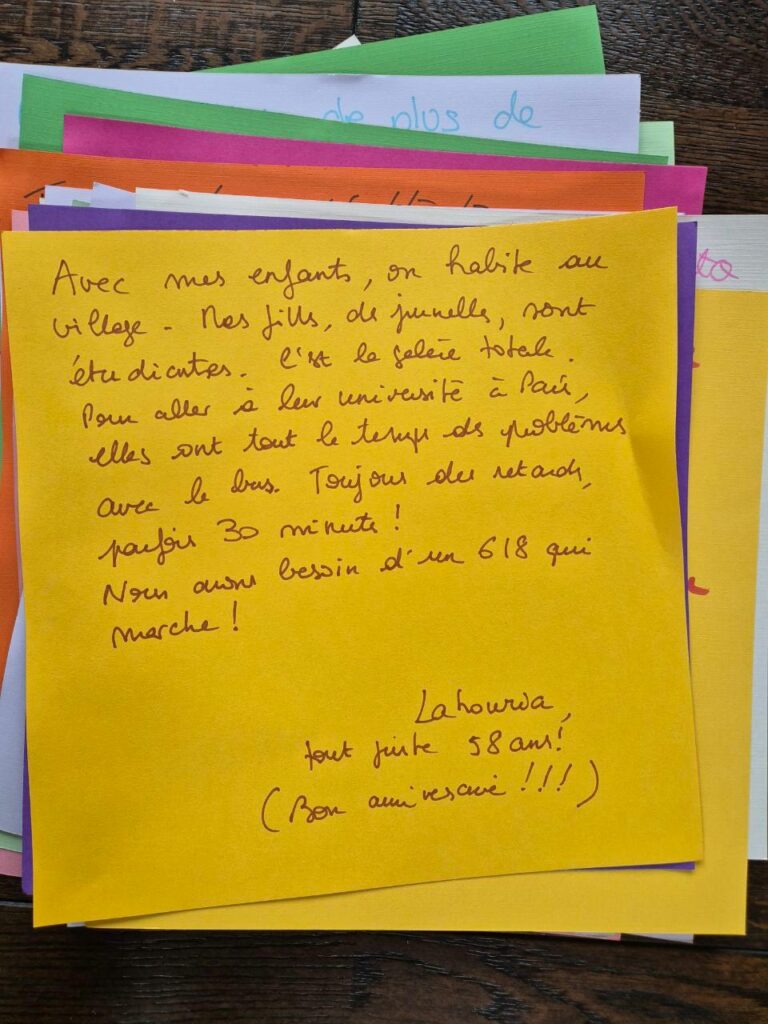 de plus de
to
Avec mes enfants, on habite au
village. Mes filles, des jumelles, sont
étudiantes. C'est la galère totale.
Pour aller à leur université à Paris,
elles ont tout le temps des problèmes
avec le bus. Toujours des retards,
parfois 30 minutes !
Nous avons besoin d'un 618 qui
marche !
Lahouria,
tout juste 58 ans !
(Bon anniversaire !!!)